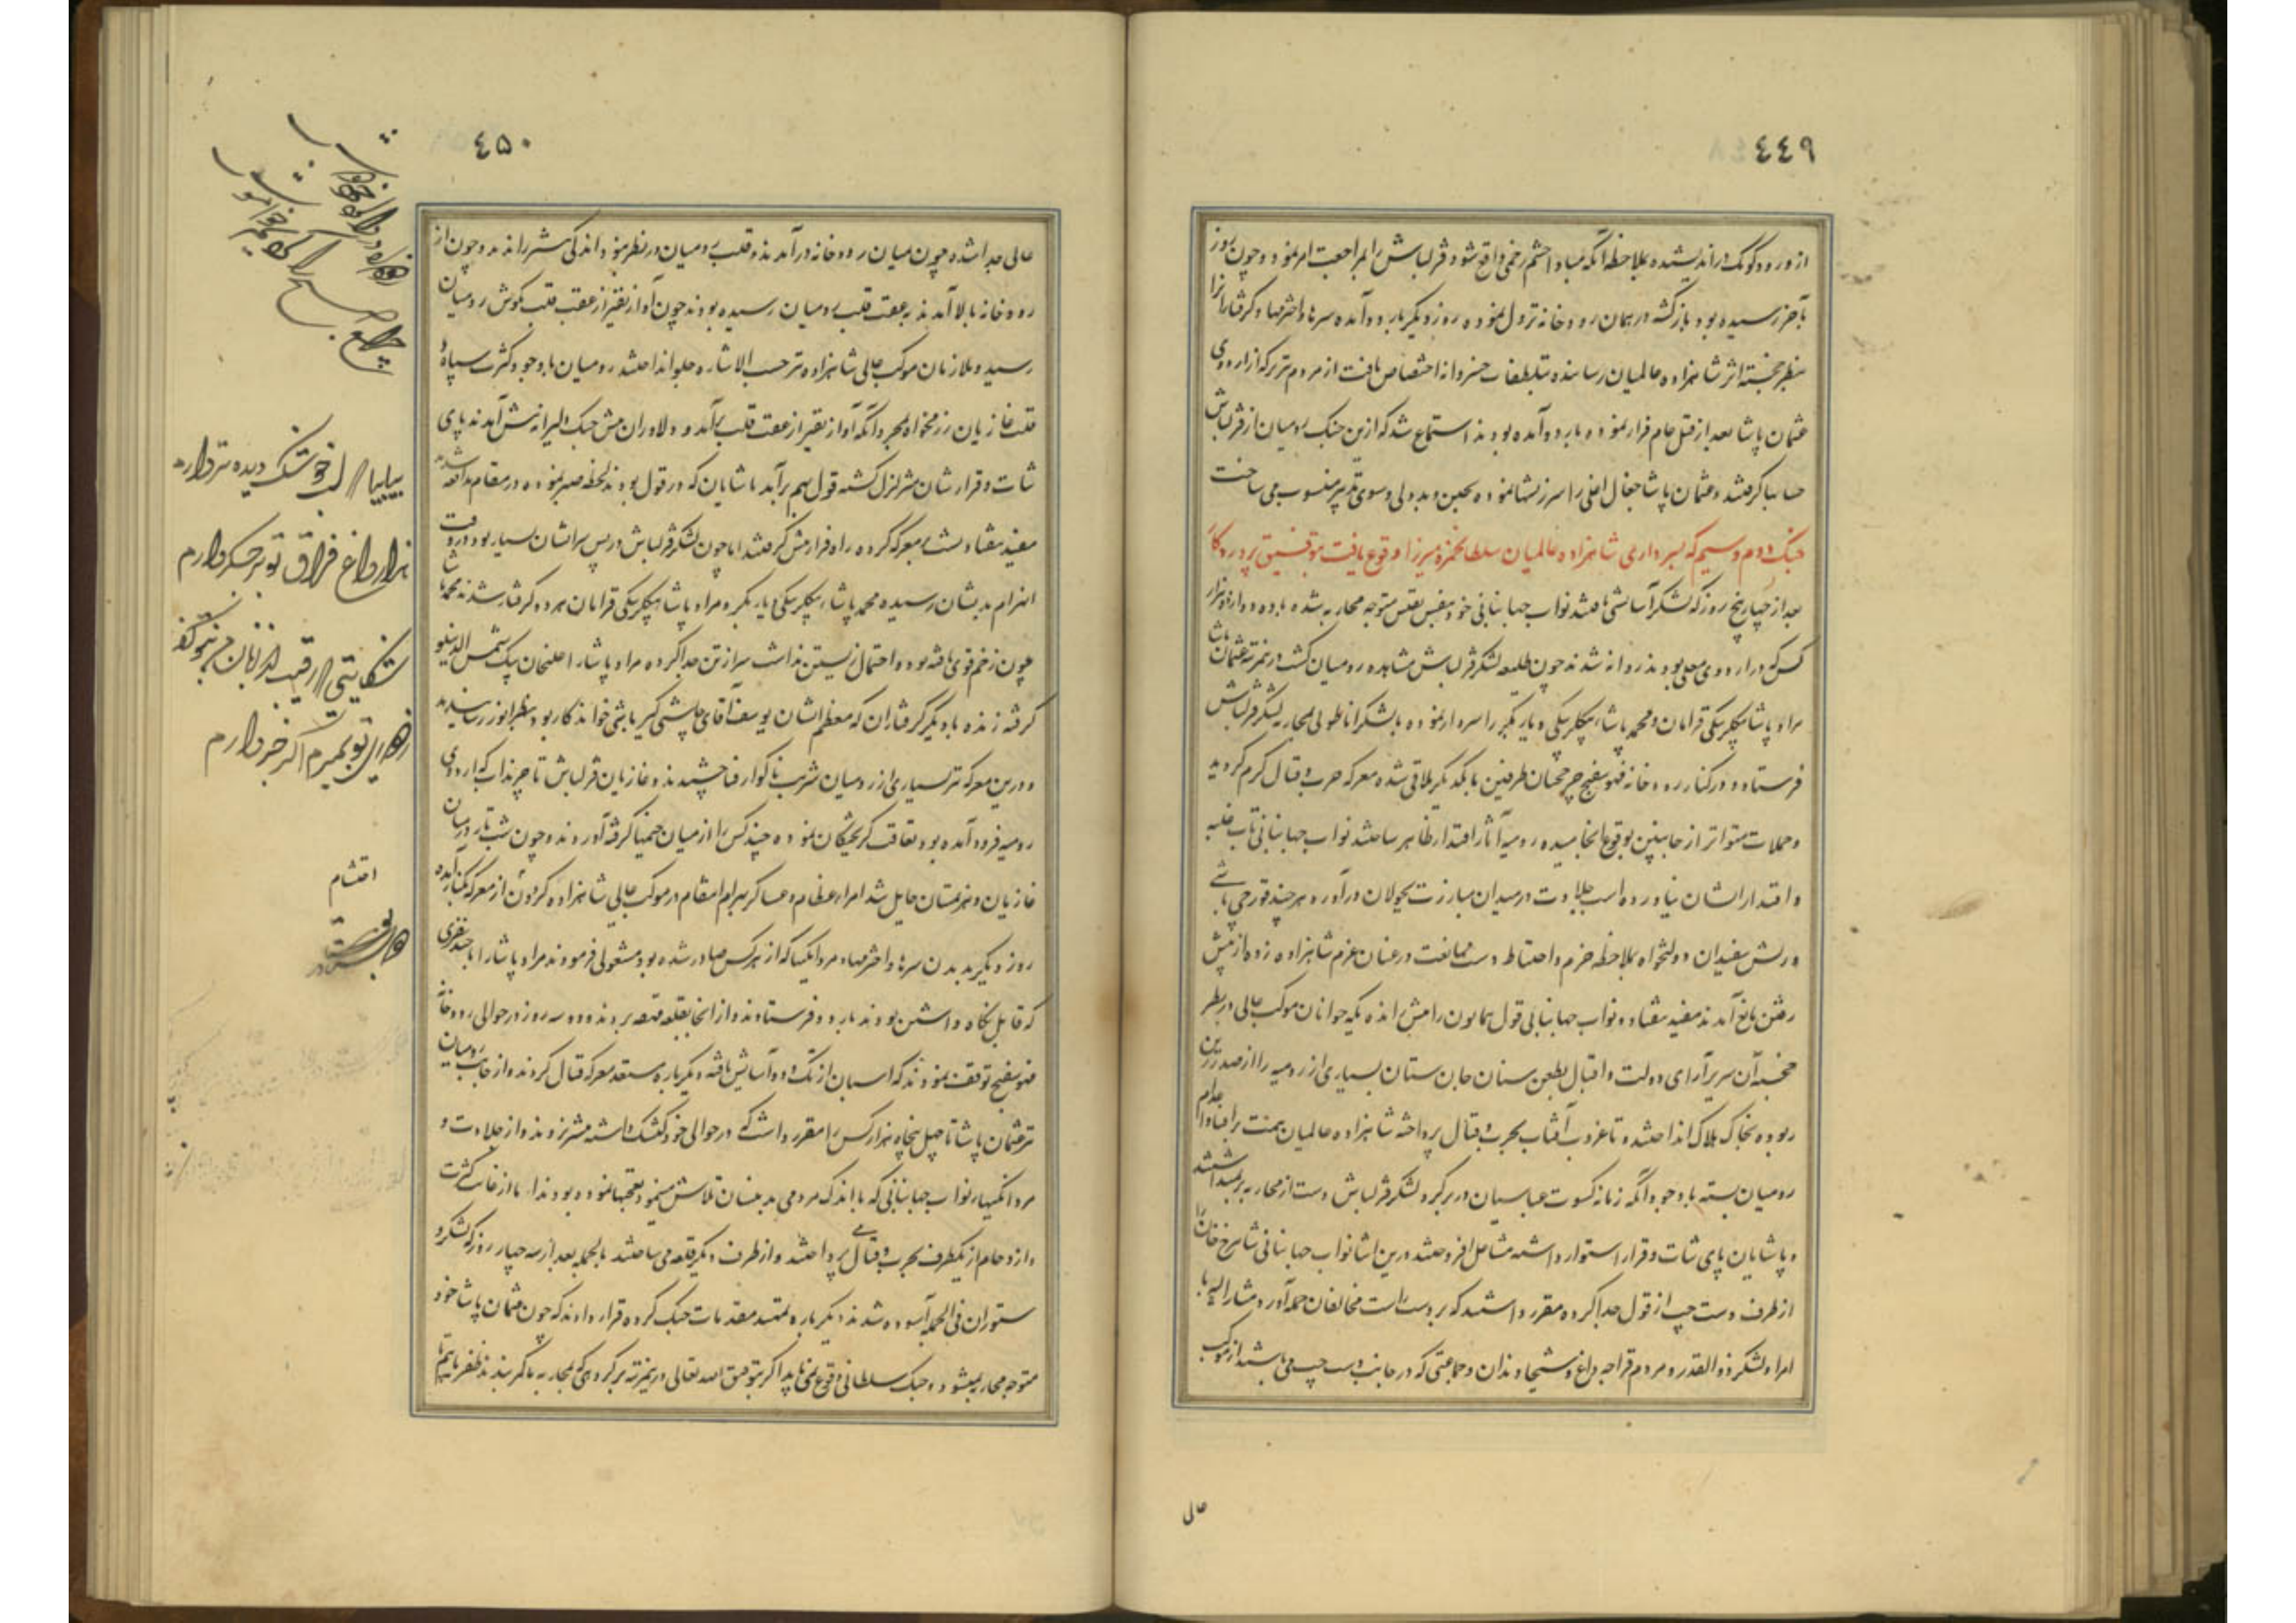 ٤٤٩
از ورود کومک در اندیشیده بملاحظه آنکه مبادا چشم زخمی واقع شود قزلباش را بمراجعت امر نمود و چون روز
بآخر رسیده بود بازگشته در همان رودخانه نزول نموده روز دیگر باردو آمده سرها و اخترمها و گرفتاران را
بنظر خجسته اثر شاهزاده عالمیان رسانیده بتلطفات خسروانه اختصاص یافت از مردم تبریز که از اردوی
عثمان پاشا بعد از قتل عام فرار نموده باردو آمده بودند استماع شد که ازین جنگ رومیان از قزلباش
حسابها گرفتند و عثمان پاشا جغال اغلی را سرزنشها نموده بجبن و بددلی و سوی تدبیر منسوب می ساخت
جنگ دوم و سیم که بسرداری شاهزاده عالمیان سلطان حمزه میرزا وقوع یافت بتوفیق پروردگار
بعد از چهار پنج روز که لشکر آسایشی یافتند نواب جهانبانی خود بنفس نفیس متوجه محاربه شده با ده دوازده هزار
کس که در اردوی معلی بودند روانه شدند چون طلیعه لشکر قزلباش مشاهده رومیان گشت درین مرتبه عثمان پاشا
مراد پاشا بیگلربیگی قرامان و محمد پاشا بیگلربیگی دیاربکر را سردار نموده با لشکر اناطولی بمحاربه لشکر قزلباش
فرستاد و در کنار رودخانه فهوسفنج چرخچیان طرفین با یکدیگر ملاقی شده معرکه حرب و قتال گرم گردید
و حملات متواتر از جانبین بوقوع انجامیده رومیه آثار اقتدار ظاهر ساختند نواب جهانبانی تاب غلبه
و اقتدار ایشان نیاورده اسب جلادت در میدان مبارزت بجولان درآورد هر چند قورچی باشی
و ریش سفیدان دولتخواه بملاحظه حزم و احتیاط دست ممانعت در عنان عزم شاهزاده زده از پیش
رفتن مانع آمدند مفید نیفتاد و نواب جهانبانی قول همایون را پیش رانده یکه جوانان موکب عالی در نظر
خجسته آن سریرآرای دولت و اقبال بطعن سنان جان ستان بسیاری از رومیه را از صدر زین
ربوده بخاک هلاک انداختند و تا غروب آفتاب بحرب و قتال پرداخته شاهزاده عالمیان همت بر افنا و اعدام
رومیان بسته با وجود آنکه زمانه کسوت عباسیان در بر کرد لشکر قزلباش دست از محاربه برنمیداشتند
و پاشایان پای ثبات و قرار استوار داشته مشاعل افروختند درین اثنا نواب جهانبانی شاهرخ خان را
از طرف دست چپ از قول جدا کرده مقرر داشتند که بر دست راست مخالفان حمله آورد مشار الیه با
امراء لشکر ذوالقدر و مردم قراجه داغ و شیخاوندان و جماعتی که در جانب دست چپ می باشند از موکب
عالی
٤٥٠
عالی جدا شده چون میان رودخانه درآمدند و قلب رومیان در نظر نمود اندکی پیشتر راندند و چون از
رودخانه بالا آمدند بعقب قلب رومیان رسیده بودند چون آواز نفیر از عقب قلب بگوش رومیان
رسید و ملازمان موکب عالی شاهزاده نیز حسب الاشاره جلو انداختند رومیان با وجود کثرت سپاه و
قلت غازیان رزمخواه بمجرد آنکه آواز نفیر از عقب قلب برآمد و دلاوران پیش جنگ دلیرانه پیش آمدند پای
ثبات و قرارشان متزلزل گشته قول بهم برآمد پاشایان که در قول بودند لحظه صبر نموده در مقام مدافعه شدند
مفید نیفتاد پشت بمعرکه کرده راه فرار پیش گرفتند اما چون لشکر قزلباش در پس سر ایشان بسیار بود در وقت
انهزام بدیشان رسیده محمد پاشا بیگلربیگی دیاربکر و مراد پاشا بیگلربیگی قرامان هر دو گرفتار شدند محمد پاشا
چون زخم قوی یافته بود و احتمال زیستن نداشت سر از تن جدا کرده مراد پاشا را اصلخان بیک شمس الدینلو
گرفته زنده با دیگر گرفتاران که معظم ایشان یوسف آقای چاشنی گیر باشی خواندکار بود بنظر انور رسانیدند
و درین معرکه نیز بسیاری از رومیان شربت ناگوار فنا چشیدند و غازیان قزلباش تا چرنداب که اردوی
رومیه فرود آمده بود تعاقب گریختگان نموده چند کس را از میان خیمها گرفته آوردند و چون شب تار در میان
غازیان و هزیمتیان حایل شد امراء عظام و عساکر بهرام انتقام در موکب عالی شاهزاده گردون از معرکه بکنار آمده
روز دیگر بدیدن سرها و اخترمها و مردانگیها که از هر کس صادر شده بود مشغولی فرمودند مراد پاشا را با چند نفری
که قابل نگاه داشتن بودند باردو فرستادند و از آنجا بقلعه قهقهه بردند و دو سه روز در حوالی رودخانه
فهوسفنج توقف نمودند که اسبان از تگ و دو آسایش یافته دیگرباره مستعد معرکه قتال گردند و از جانب رومیان
نیز عثمان پاشا تا چهل پنجاه هزار کس را مقرر داشت که در حوالی خود کشیک داشته متفرق نشوند و از جلادت و
مردانگیهاء نواب جهانبانی که با اندک مردمی بدینسان تلاش مینمود تعجبها نموده بودند اما از غایت کثرت
و ازدحام از یکطرف بحرب و قتال می پرداختند و از طرف دیگر قلعه می ساختند بالجمله بعد از سه چهار روز که لشکر و
ستوران فی الجمله آسوده شدند دیگرباره تمهید مقدمات جنگ کرده قرار دادند که چون عثمان پاشا خود
متوجه محاربه نمیشود و جنگ سلطانی وقوع نمی یابد اگر بتوفیق الله تعالی درین مرتبه بر گروهی که بمحاربه ما کمر بندند ظفر یابیم
بیا بیا که لب خوشک و دیده تر دارم
هزار داغ فراق تو بر جگر دارم
شکایتی که رقیب از زبان من بتو گفت
تو بمیرم اگر خبر دارم